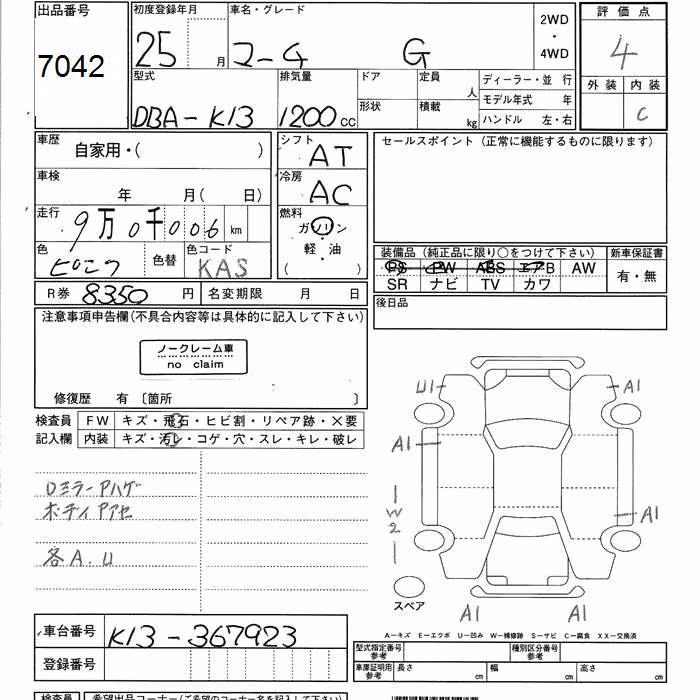 出品番号 初度登録年月 車名・グレード 2WD・4WD 評価点
7042 25 月 マーチ G 4
型式 排気量 ドア 定員 人 ディーラー・並 行 外装 内装
DBA-K13 1200cc 形状 積載 kg モデル年式 年 C
ハンドル 左・右
車歴 自家用・( ) シフト AT セールスポイント(正常に機能するものに限ります)
車検 年 月( 日) 冷房 AC
走行 9万0千006km 燃料 ガソリン
色 色替 色コード KAS 軽・油
( )
装備品(純正品に限り○をつけて下さい) 新車保証書
PS PW ABS エアB AW 有・無
SR ナビ TV カワ
R券 8350円 名変期限 月 日 後日品
注意事項申告欄(不具合内容等は具体的に記入して下さい)
ノークレーム車
no claim
修復歴 有 〔箇所 〕
検査員 FW キズ・飛石・ヒビ割・リペア跡・×要
記入欄 内装 キズ・汚レ・コゲ・穴・スレ・キレ・破レ
U1 A1
A1
W2
A1
Dミラーアハゲ
ボディアアセ
各A.U
スペア
A1 A1
A-キズ E-エクボ U-凹み W-補修跡 S-サビ C-腐食 XX-交換済
車台番号 K13-367923
登録番号
型式指定番号 参考 種別区分番号 参考
車庫証明用 参考 長さ cm 幅 cm 高さ cm
検査員 希望出品コーナー(ご希望のコーナー名を記入下さい)